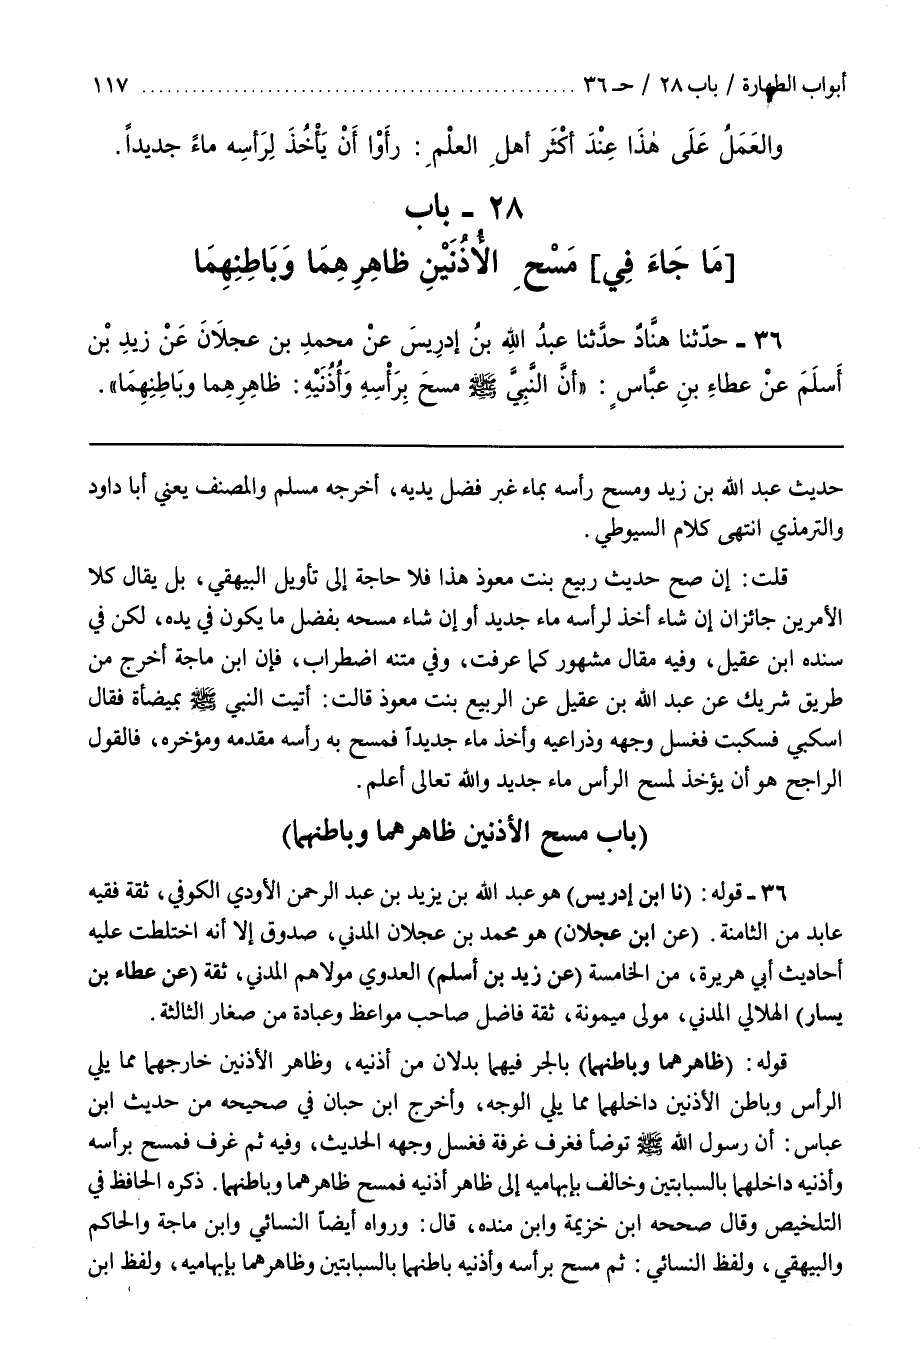 أبواب الطهارة / باب ٢٨ / حـ ٣٦ ................................................ ١١٧
والعَمَلُ عَلَى هٰذَا عِنْدَ أكْثَر أهلِ العلْمِ : رأَوْا أَنْ يَأْخُذَ لِرَأسِه ماءً جديداً.
٢٨ ـ باب
[مَا جَاءَ فِي] مَسْحِ الأُذُنَيْنِ ظاهِرِهِمَا وَبَاطِنِهِمَا
٣٦ ـ حدّثنا هنَّادٌ حدَّثنا عبدُ اللهِ بنُ إدرِيسَ عنْ محمدِ بن عجلَانَ عَنْ زيدِ بْنِ
أَسلَمَ عنْ عطاءِ بنِ عبَّاسٍ : «أنَّ النَّبِيَّ ﷺ مسحَ بِرَأْسِهِ وَأُذُنَيْهِ: ظاهِرِهما وبَاطِنِهِمَا».
حديث عبد الله بن زيد ومسح رأسه بماء غبر فضل يديه، أخرجه مسلم والمصنف يعني أبا داود
والترمذي انتهى كلام السيوطي.
قلت: إن صح حديث ربيع بنت معوذ هذا فلا حاجة إلى تأويل البيهقي، بل يقال كلا
الأمرين جائزان إن شاء أخذ لرأسه ماء جديد أو إن شاء مسحه بفضل ما يكون في يده، لكن في
سنده ابن عقيل، وفيه مقال مشهور كما عرفت، وفي متنه اضطراب، فإن ابن ماجة أخرج من
طريق شريك عن عبد الله بن عقيل عن الربيع بنت معوذ قالت: أتيت النبي ﷺ بميضأة فقال
اسكبي فسكبت فغسل وجهه وذراعيه وأخذ ماء جديداً فمسح به رأسه مقدمه ومؤخره، فالقول
الراجح هو أن يؤخذ لمسح الرأس ماء جديد والله تعالى أعلم.
(باب مسح الأذنين ظاهرهما وباطنها)
٣٦ ـ قوله: (نا ابن إدريس) هو عبد الله بن يزيد بن عبد الرحمن الأودي الكوفي، ثقة فقيه
عابد من الثامنة. (عن ابن عجلان) هو محمد بن عجلان المدني، صدوق إلا أنه اختلطت عليه
أحاديث أبي هريرة، من الخامسة (عن زيد بن أسلم) العدوي مولاهم المدني، ثقة (عن عطاء بن
يسار) الهلالي المدني، مولى ميمونة، ثقة فاضل صاحب مواعظ وعبادة من صغار الثالثة.
قوله: (ظاهرهما وباطنها) بالجر فيهما بدلان من أذنيه، وظاهر الأذنين خارجهما مما يلي
الرأس وباطن الأذنين داخلهما مما يلي الوجه، وأخرج ابن حبان في صحيحه من حديث ابن
عباس: أن رسول الله ﷺ توضأ فغرف غرفة فغسل وجهه الحديث، وفيه ثم غرف فمسح برأسه
وأذنيه داخلهما بالسبابتين وخالف بإبهاميه إلى ظاهر أذنيه فمسح ظاهرهما وباطنهما. ذكره الحافظ في
التلخيص وقال صححه ابن خزيمة وابن منده، قال: ورواه أيضاً النسائي وابن ماجة والحاكم
والبيهقي، ولفظ النسائي: ثم مسح برأسه وأذنيه باطنهما بالسبابتين وظاهرهما بإبهاميه، ولفظ ابن